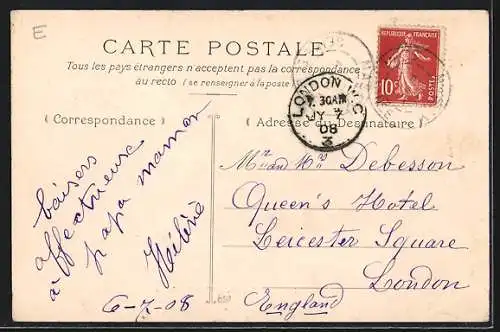 E
CARTE POSTALE
Tous les pays étrangers n'acceptent pas la correspondance
au recto (se renseigner à la poste)
REPUBLIQUE FRANÇAISE
10c
POSTES
LONDON W.C
7. 30AM
JY 7
08
3
(Correspondance)
(Adresse du Destinataire)
baisers
affectueux
à papa maman
Hélène
6-7-08
Mr and Mrs Debesson
Queen's Hotel
Leicester Square
London
England